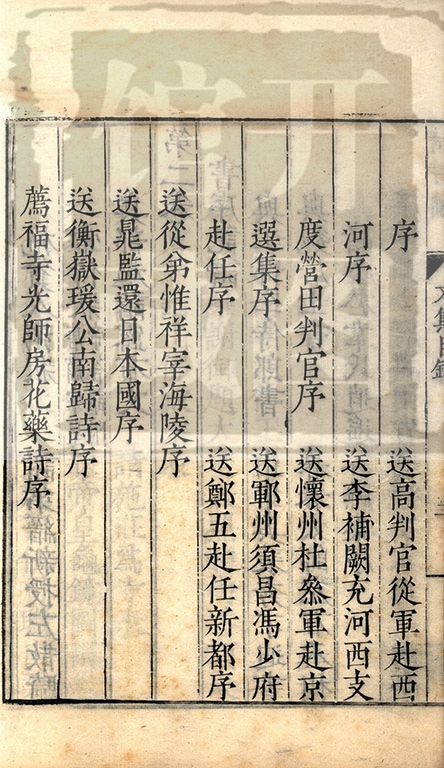 序　送高判官從軍赴西
河序　送李補闕充河西支
度營田判官序　送懷州杜叅軍赴京
選集序　送鄆州須昌馮少府
赴任序　送鄭五赴任新都序
送從弟惟祥宰海陵序
送晁監還日本國序
送衡嶽瑗公南歸詩序
薦福寺光師房花藥詩序